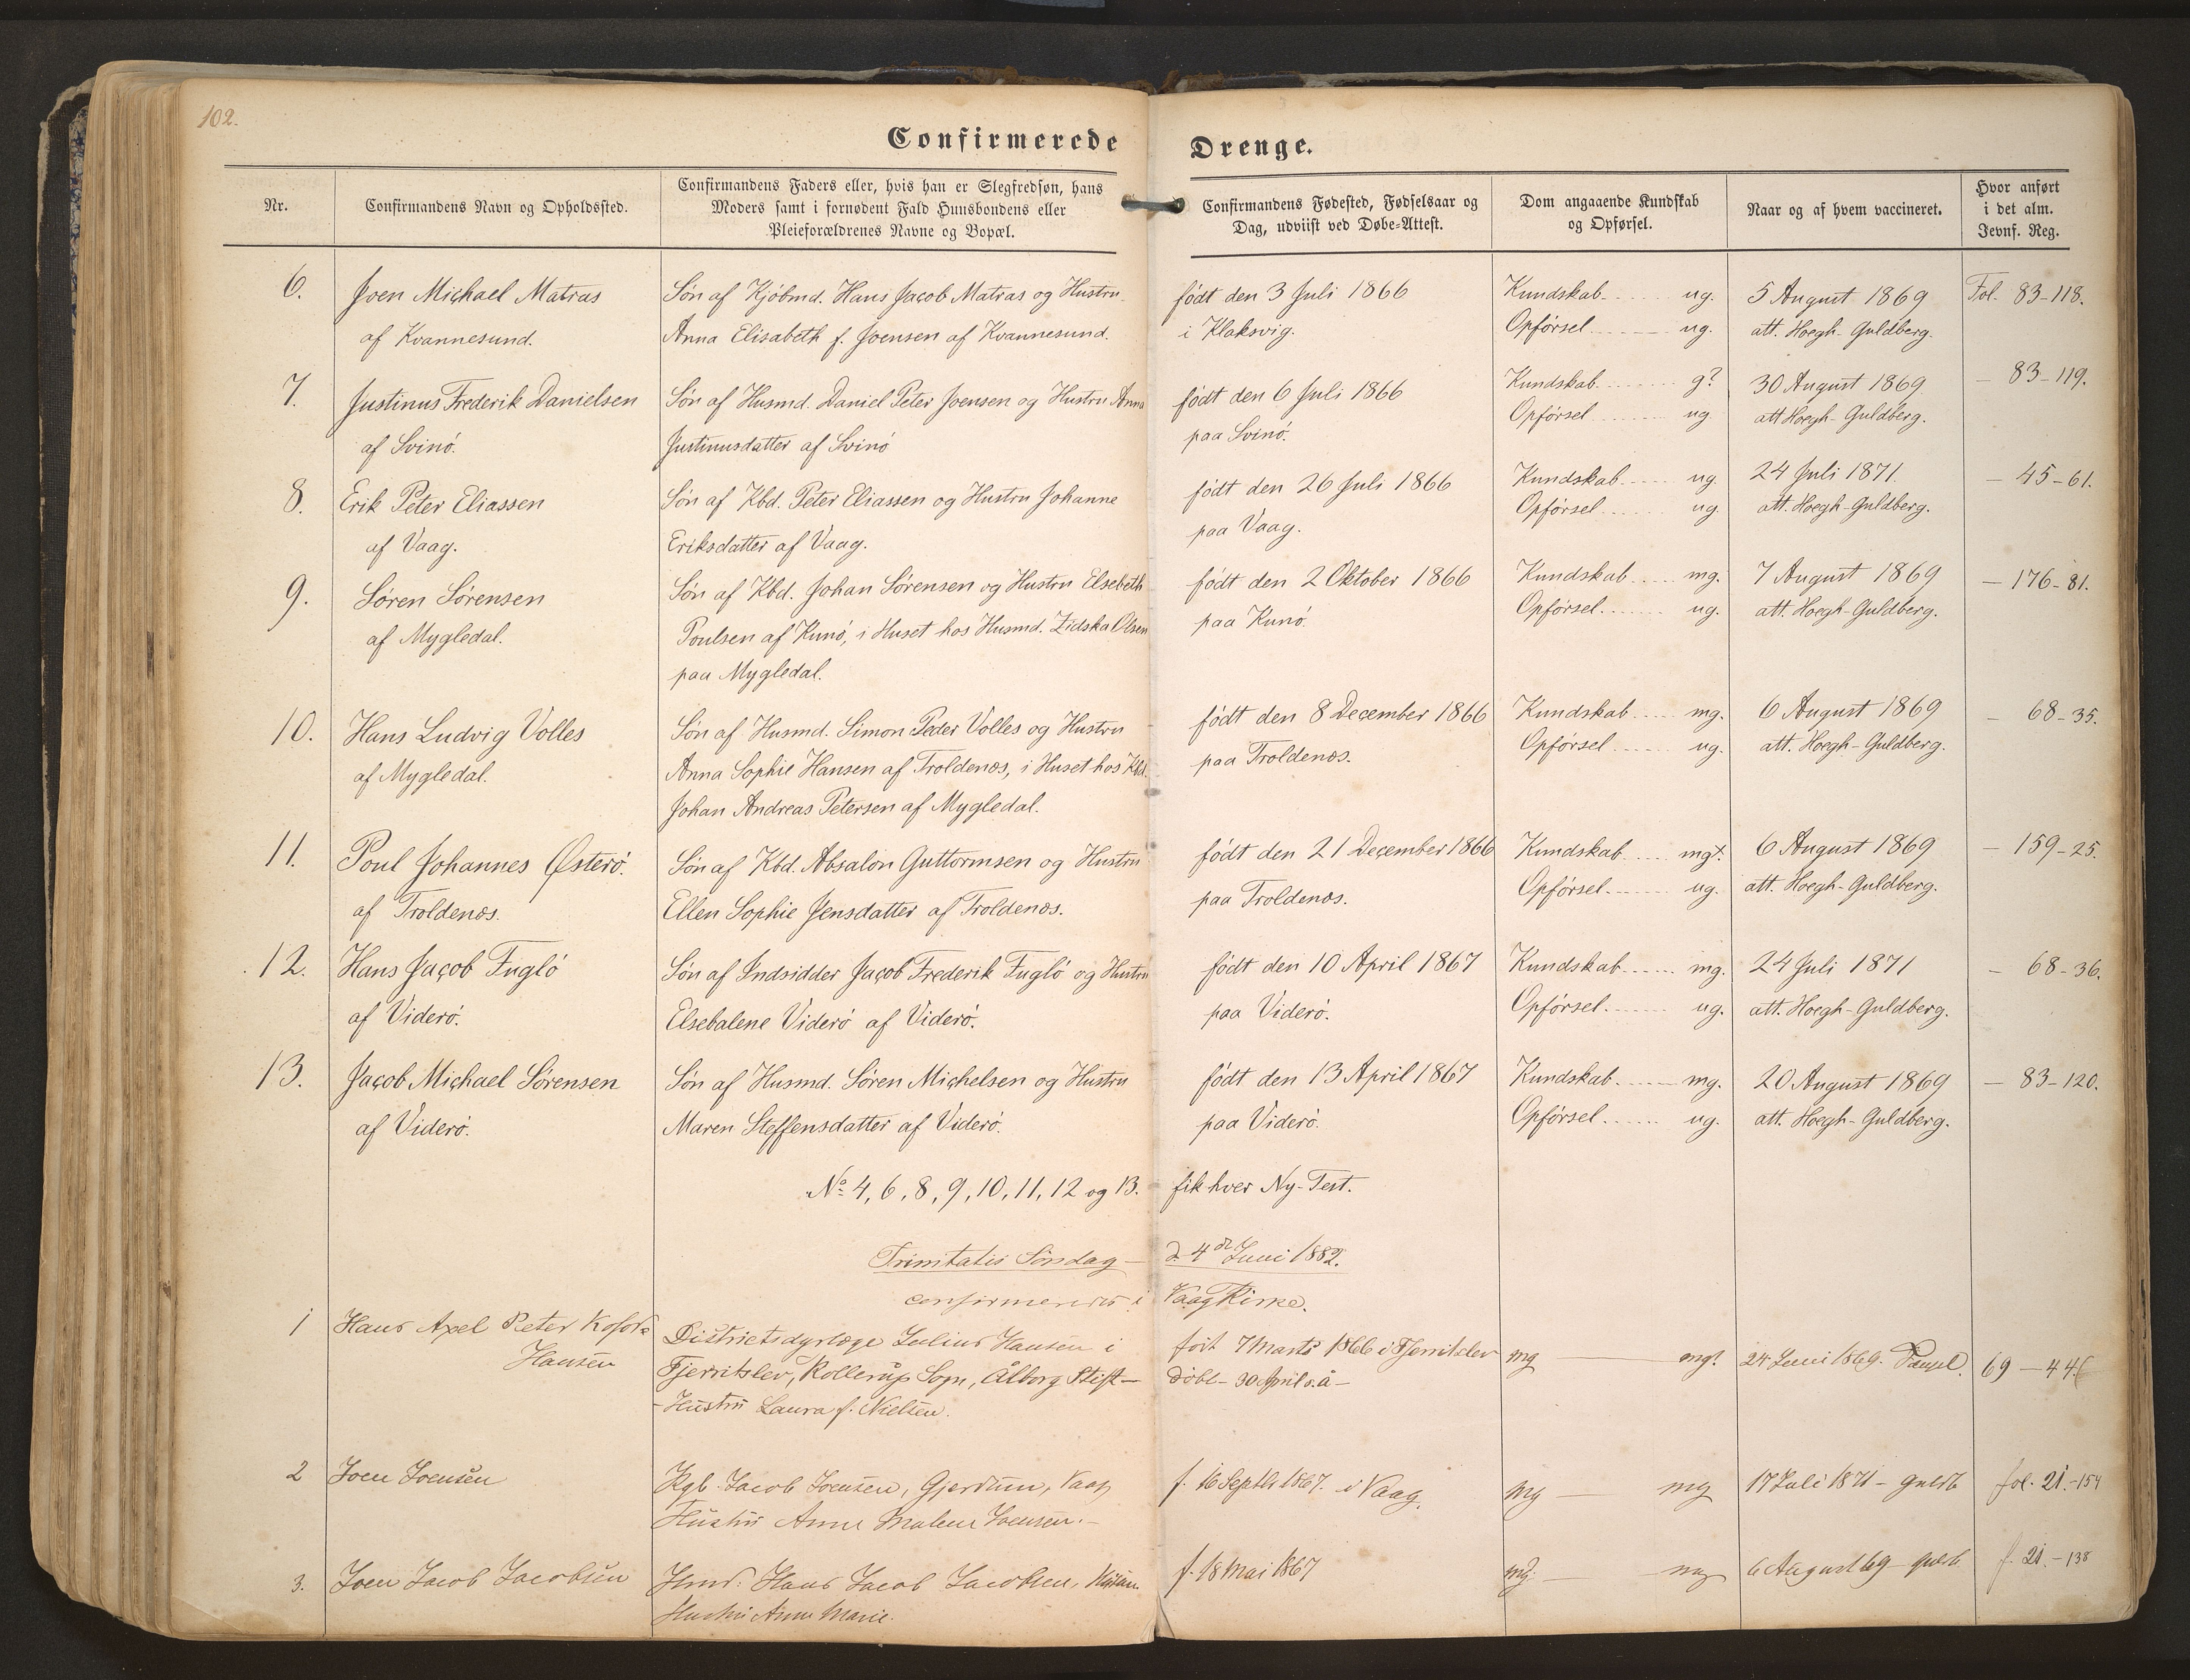 102.
Confirmerede Drenge.
Nr.
Confirmandens Navn og Opholdssted.
Confirmandens Faders eller, hvis han er Slegfredsøn, hans
Moders samt i fornødent Fald Huusbondens eller
Pleieforældrenes Navne og Bopæl.
Confirmandens Fødested, Fødselsaar og
Dag, udviist ved Døbe-Attest.
Dom angaaende Kundskab
og Opførsel.
Naar og af hvem vaccineret.
Hvor anført
i det alm.
Jevnf. Reg.
6.
Joen Michael Matras
af Kvannesund.
Søn af Kjöbmd. Hans Jacob Matras og Hustru
Anna Elisabeth f. Joensen af Kvannesund.
födt den 3 Juli 1866
i Klaksvig.
Kundskab ug.
Opförsel ug.
5 August 1869
att. Hoegh-Guldberg.
Fol. 83-118.
7.
Justinus Frederik Danielsen
af Svinö.
Søn af Husmd. Daniel Peter Joensen og Hustru Anna
Justinusdatter af Svinö
födt den 6 Juli 1866
paa Svinö.
Kundskab g?
Opförsel ug
30 August 1869
att Hoegh-Guldberg.
— 83-119.
8.
Erik Peter Eliassen
af Vaag.
Søn af Kbd. Peter Eliassen og Hustru Johanne
Eriksdatter af Vaag.
födt den 26 Juli 1866
paa Vaag.
Kundskab ug
Opförsel ug
24 Juli 1871.
att. Hoegh-Guldberg.
— 45-61.
9.
Sören Sörensen
af Mygledal.
Søn af Kbd. Johan Sörensen og Hustru Elsebeth
Poulsen af Kunö, i Huset hos Husmd. Zidska Olsen
paa Mygledal.
födt den 2 Oktober 1866
paa Kunö.
Kundskab mg.
Opförsel ug.
7 August 1869
att. Hoegh-Guldberg.
— 176-81.
10.
Hans Ludvig Volles
af Mygledal.
Søn af Husmd. Simon Peder Volles og Hustru
Anna Sophie Hansen af Troldenæs, i Huset hos Kbd.
Johan Andreas Petersen af Mygledal.
födt den 8 December 1866
paa Troldenæs.
Kundskab mg.
Opförsel ug.
6 August 1869
att. Hoegh-Guldberg.
— 68-35.
11.
Poul Johannes Østerö.
af Troldenæs.
Søn af Kbd. Absalon Guttormsen og Hustru
Ellen Sophie Jensdatter af Troldenæs.
födt den 21 December 1866
paa Troldenæs.
Kundskab mg?.
Opförsel ug.
6 August 1869
att. Hoegh-Guldberg.
— 159-25.
12.
Hans Jacob Fuglö
af Viderö.
Søn af Indsidder Jacob Frederik Fuglö og Hustru
Elsebalene Viderö af Viderö.
födt den 10 April 1867
paa Viderö.
Kundskab mg.
Opförsel ug.
24 Juli 1871
att. Hoegh-Guldberg.
— 68-36.
13.
Jacob Michael Sörensen
af Viderö.
Søn af Husmd. Sören Michelsen og Hustru
Maren Steffensdatter af Viderö.
födt den 13 April 1867
paa Viderö.
Kundskab mg.
Opförsel ug.
20 August 1869
att. Hoegh-Guldberg.
— 83-120.
No 4, 6, 8, 9, 10, 11, 12 og 13. fik hver Ny-Test.
Trinitatis Söndag — d. 4de Juni 1882.
confirmeredes i Vaag Kirke.
1
Hans Axel Peter Kofod
Hansen
Districtsdyrlæge Julius Hansen i
Fjerritslev, Kollerup Sogn, Ålborg Stift —
- Hustru Laura f. Nielsen.
født 7 Marts 1866 i Fjerritslev
döbt - 30 April s. å -
mg — mg?
24 Juni 1869.
69 — 44
2
Joen Joensen
Kgb. Jacob Joensen, Gjerdum, Vaag
Hustru Anne Malene Joensen. -
f. 16 Septbr 1867. i Vaag.
mg — mg
17 Juli 1871 - Guldb
fol. 21.-154
3.
Joen Jacob Jacobsen
Hmd. Hans Jacob Jacobsen,
Hustru Anne Marie.
f. 18 Mai 1867
mg. — mg
6 August 69 - Guldb
f. 21.-138